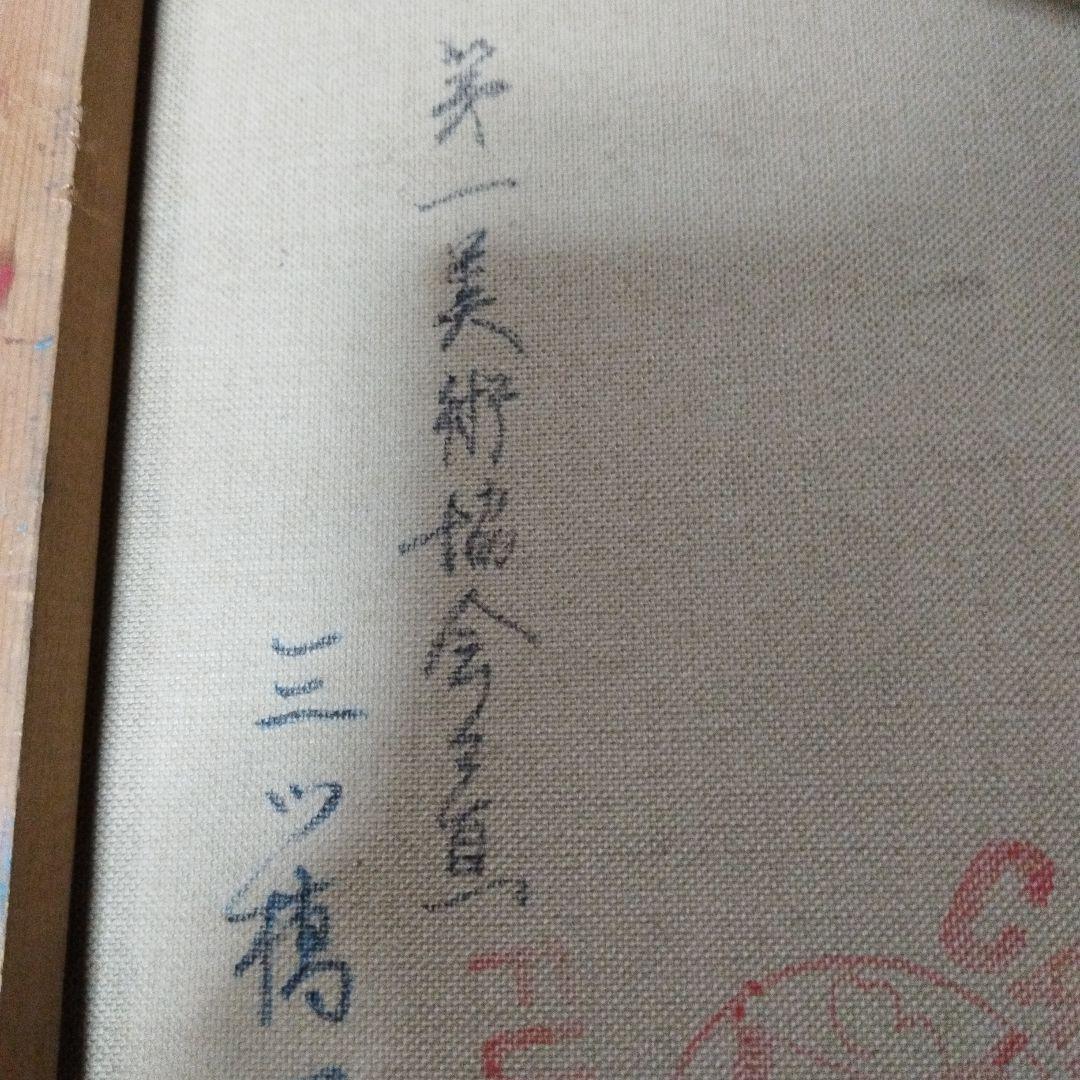 第一美術協会々員
三ツ橋
C
FU